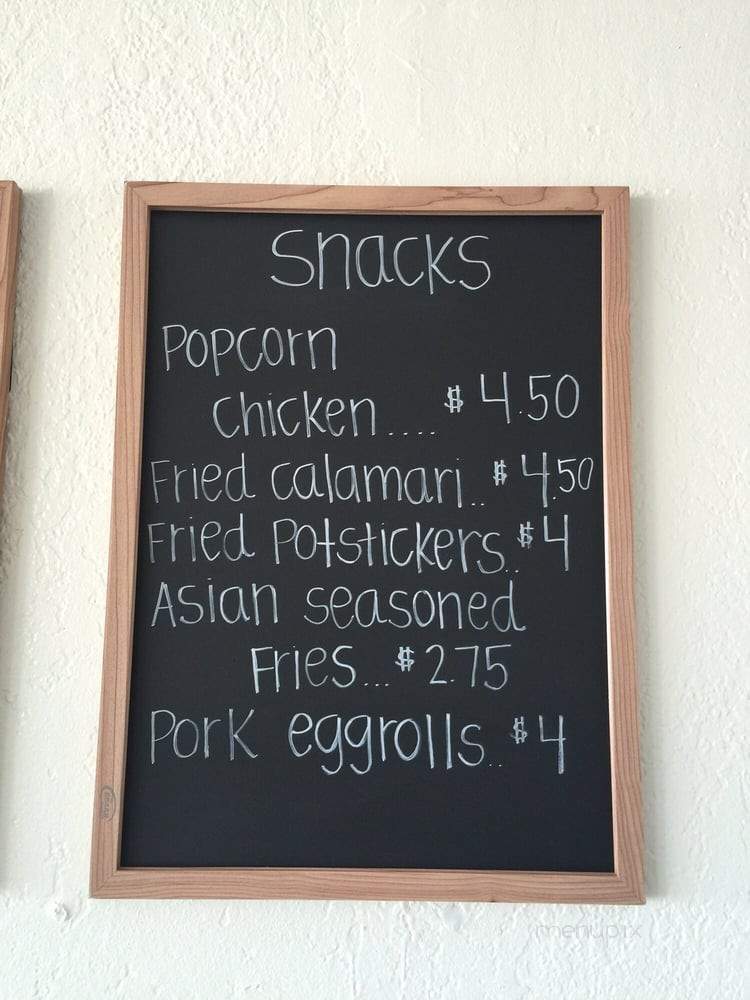 Snacks
Popcorn
chicken....$4.50
Fried calamari..$4.50
Fried Potstickers..$4
Asian seasoned
Fries...$2.75
Pork eggrolls..$4
menupix